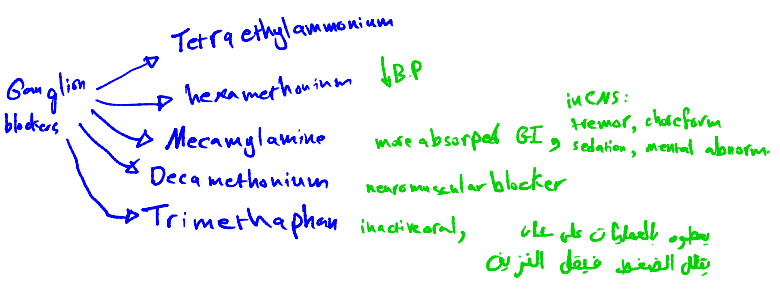 Ganglion
blockers
Tetraethylammonium
hexamethonium ↓B.P
Mecamylamine more absorped GI,
in CNS:
tremor, choreform
sedation, mental abnorm.
Decamethonium neuromuscular blocker
Trimethaphan inactive oral, يعطوه بالعمليات على شان
يقلل الضغط فيقل النزيف